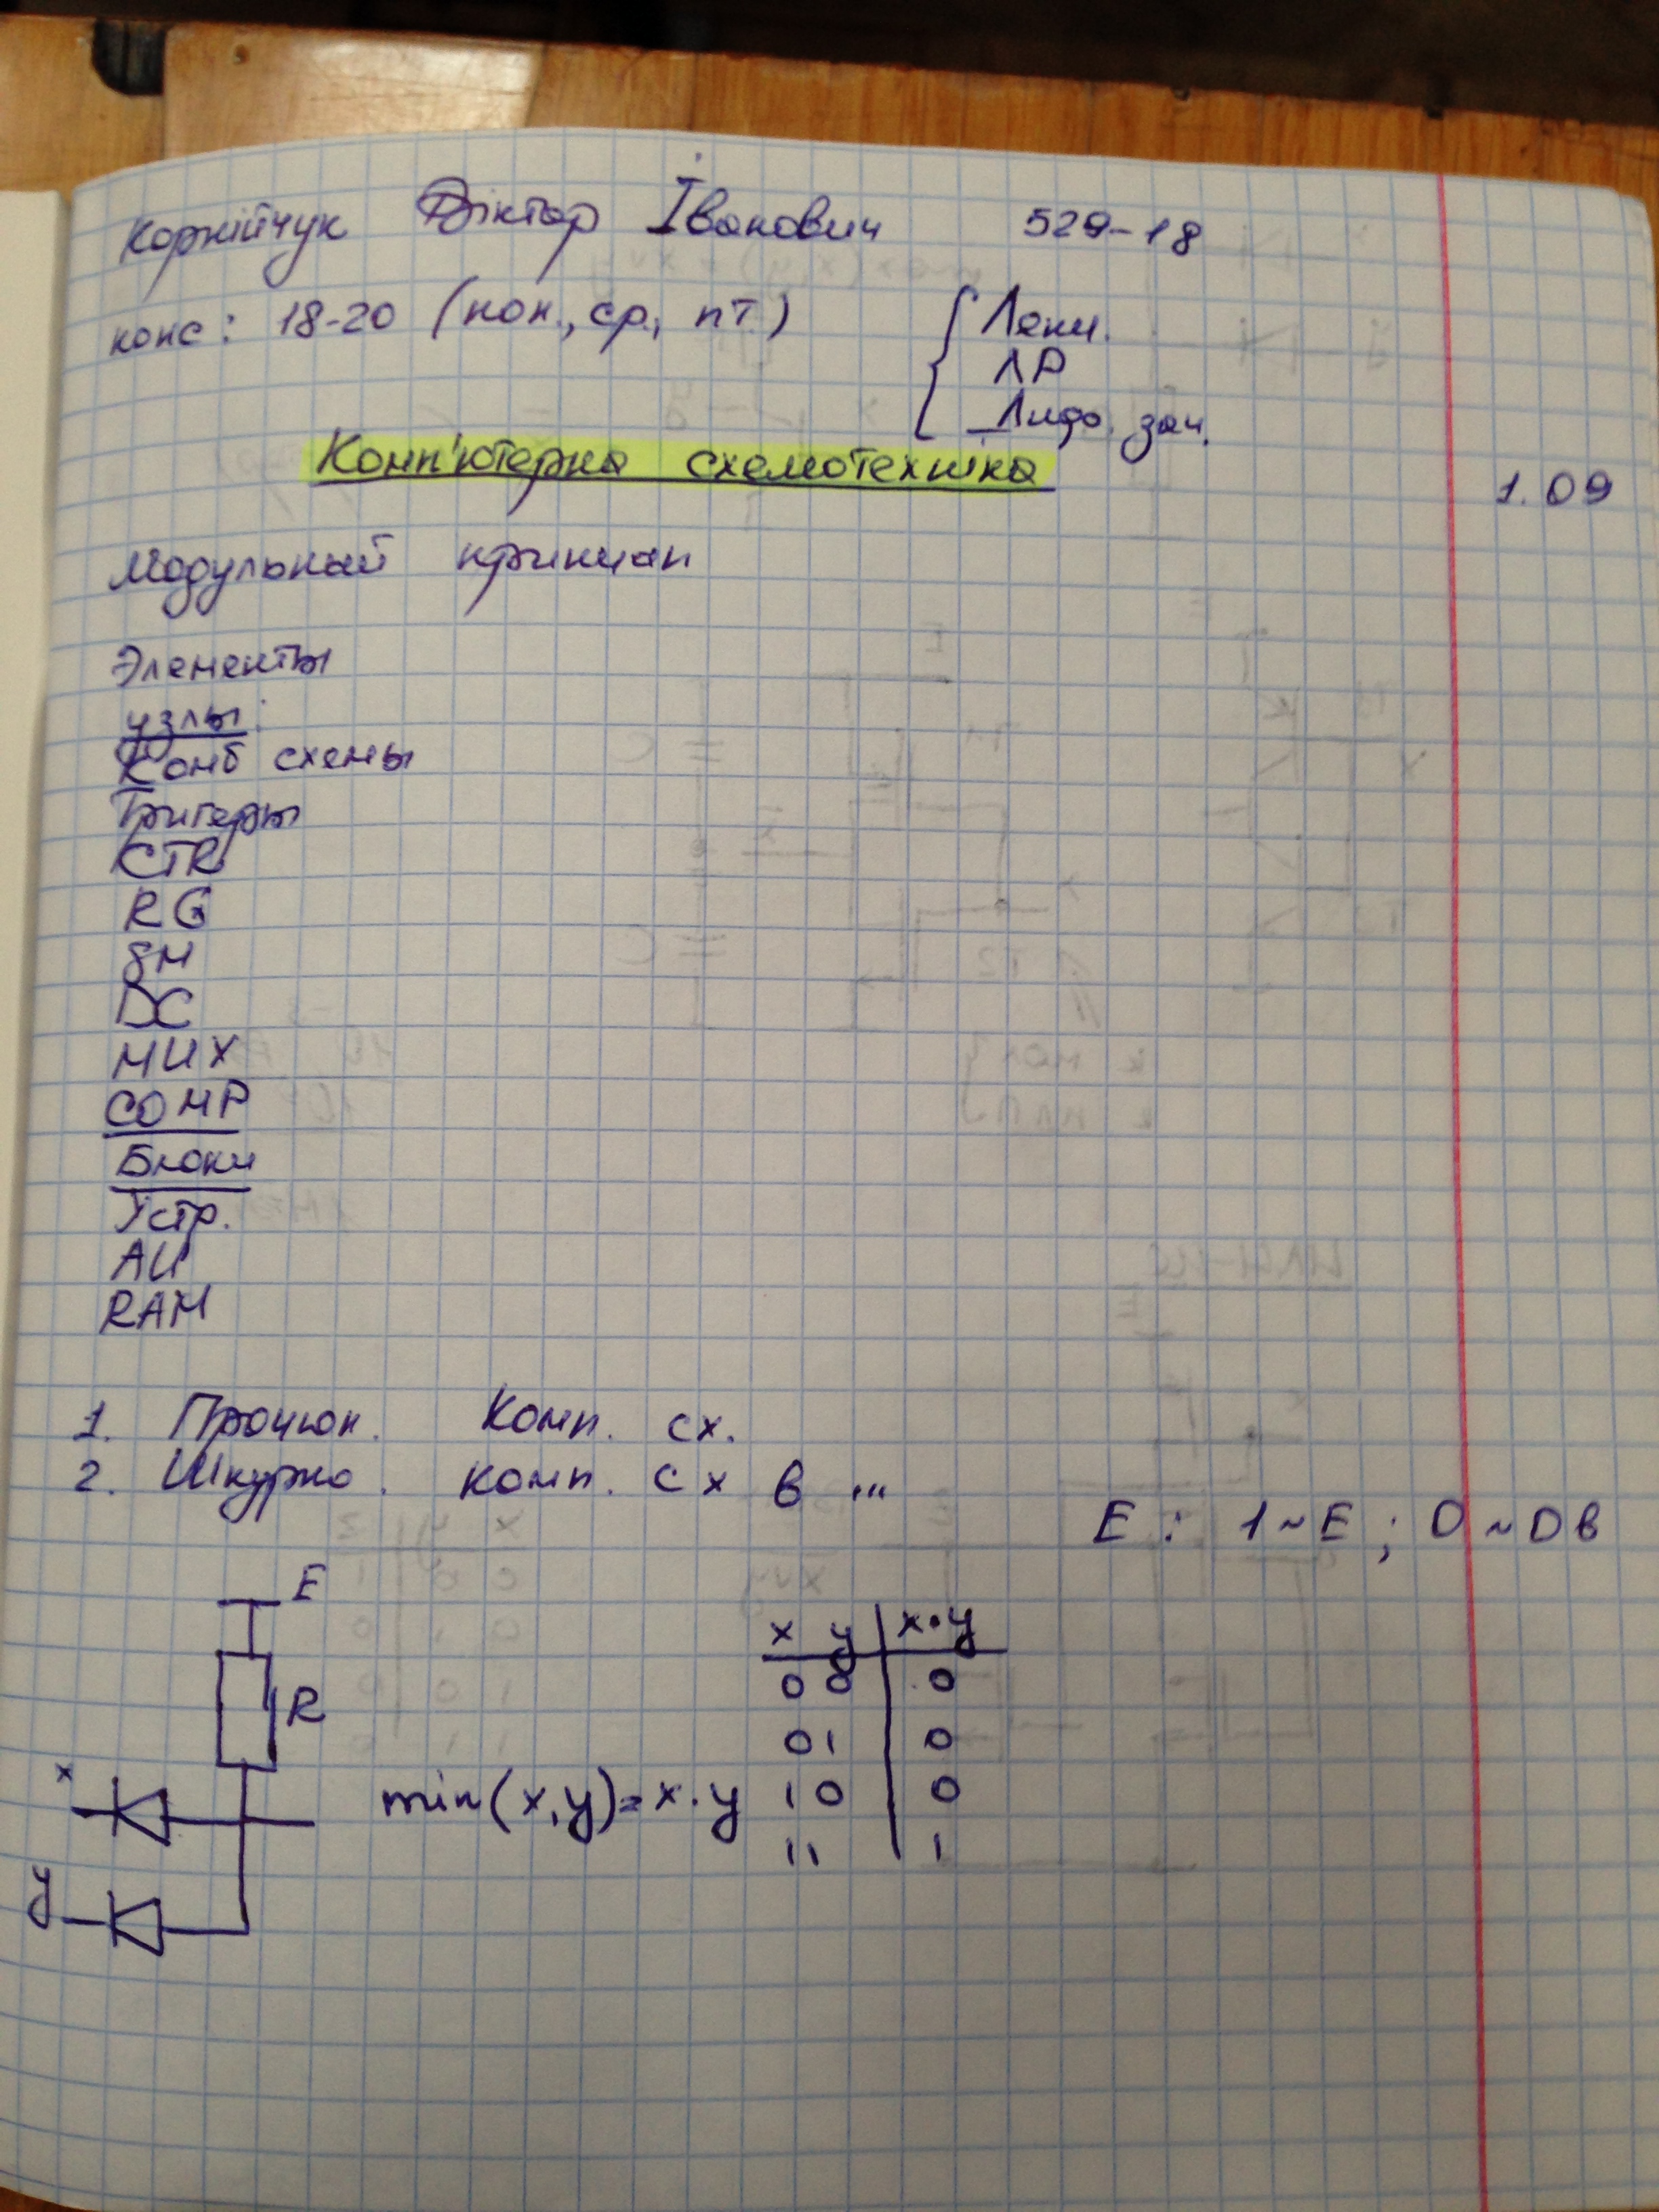 Корнійчук Віктор Іванович 529-18
конс: 18-20 (пон., ср., пт.)
Лекц.
ЛР
зач.
Комп'ютерна схемотехніка
1.09
Модульный принцип
Элементы
узлы:
Комб схемы
Тригеры
CTR
RG
SM
DC
MUX
COMP
Блоки
Устр.
AU
RAM
1. Комп. сх.
2. комп. сх в ...
E: 1~E; 0~0в
E
R
x
y
min(x,y)=x·y
x y x·y
0 0 0
0 1 0
1 0 0
1 1 1